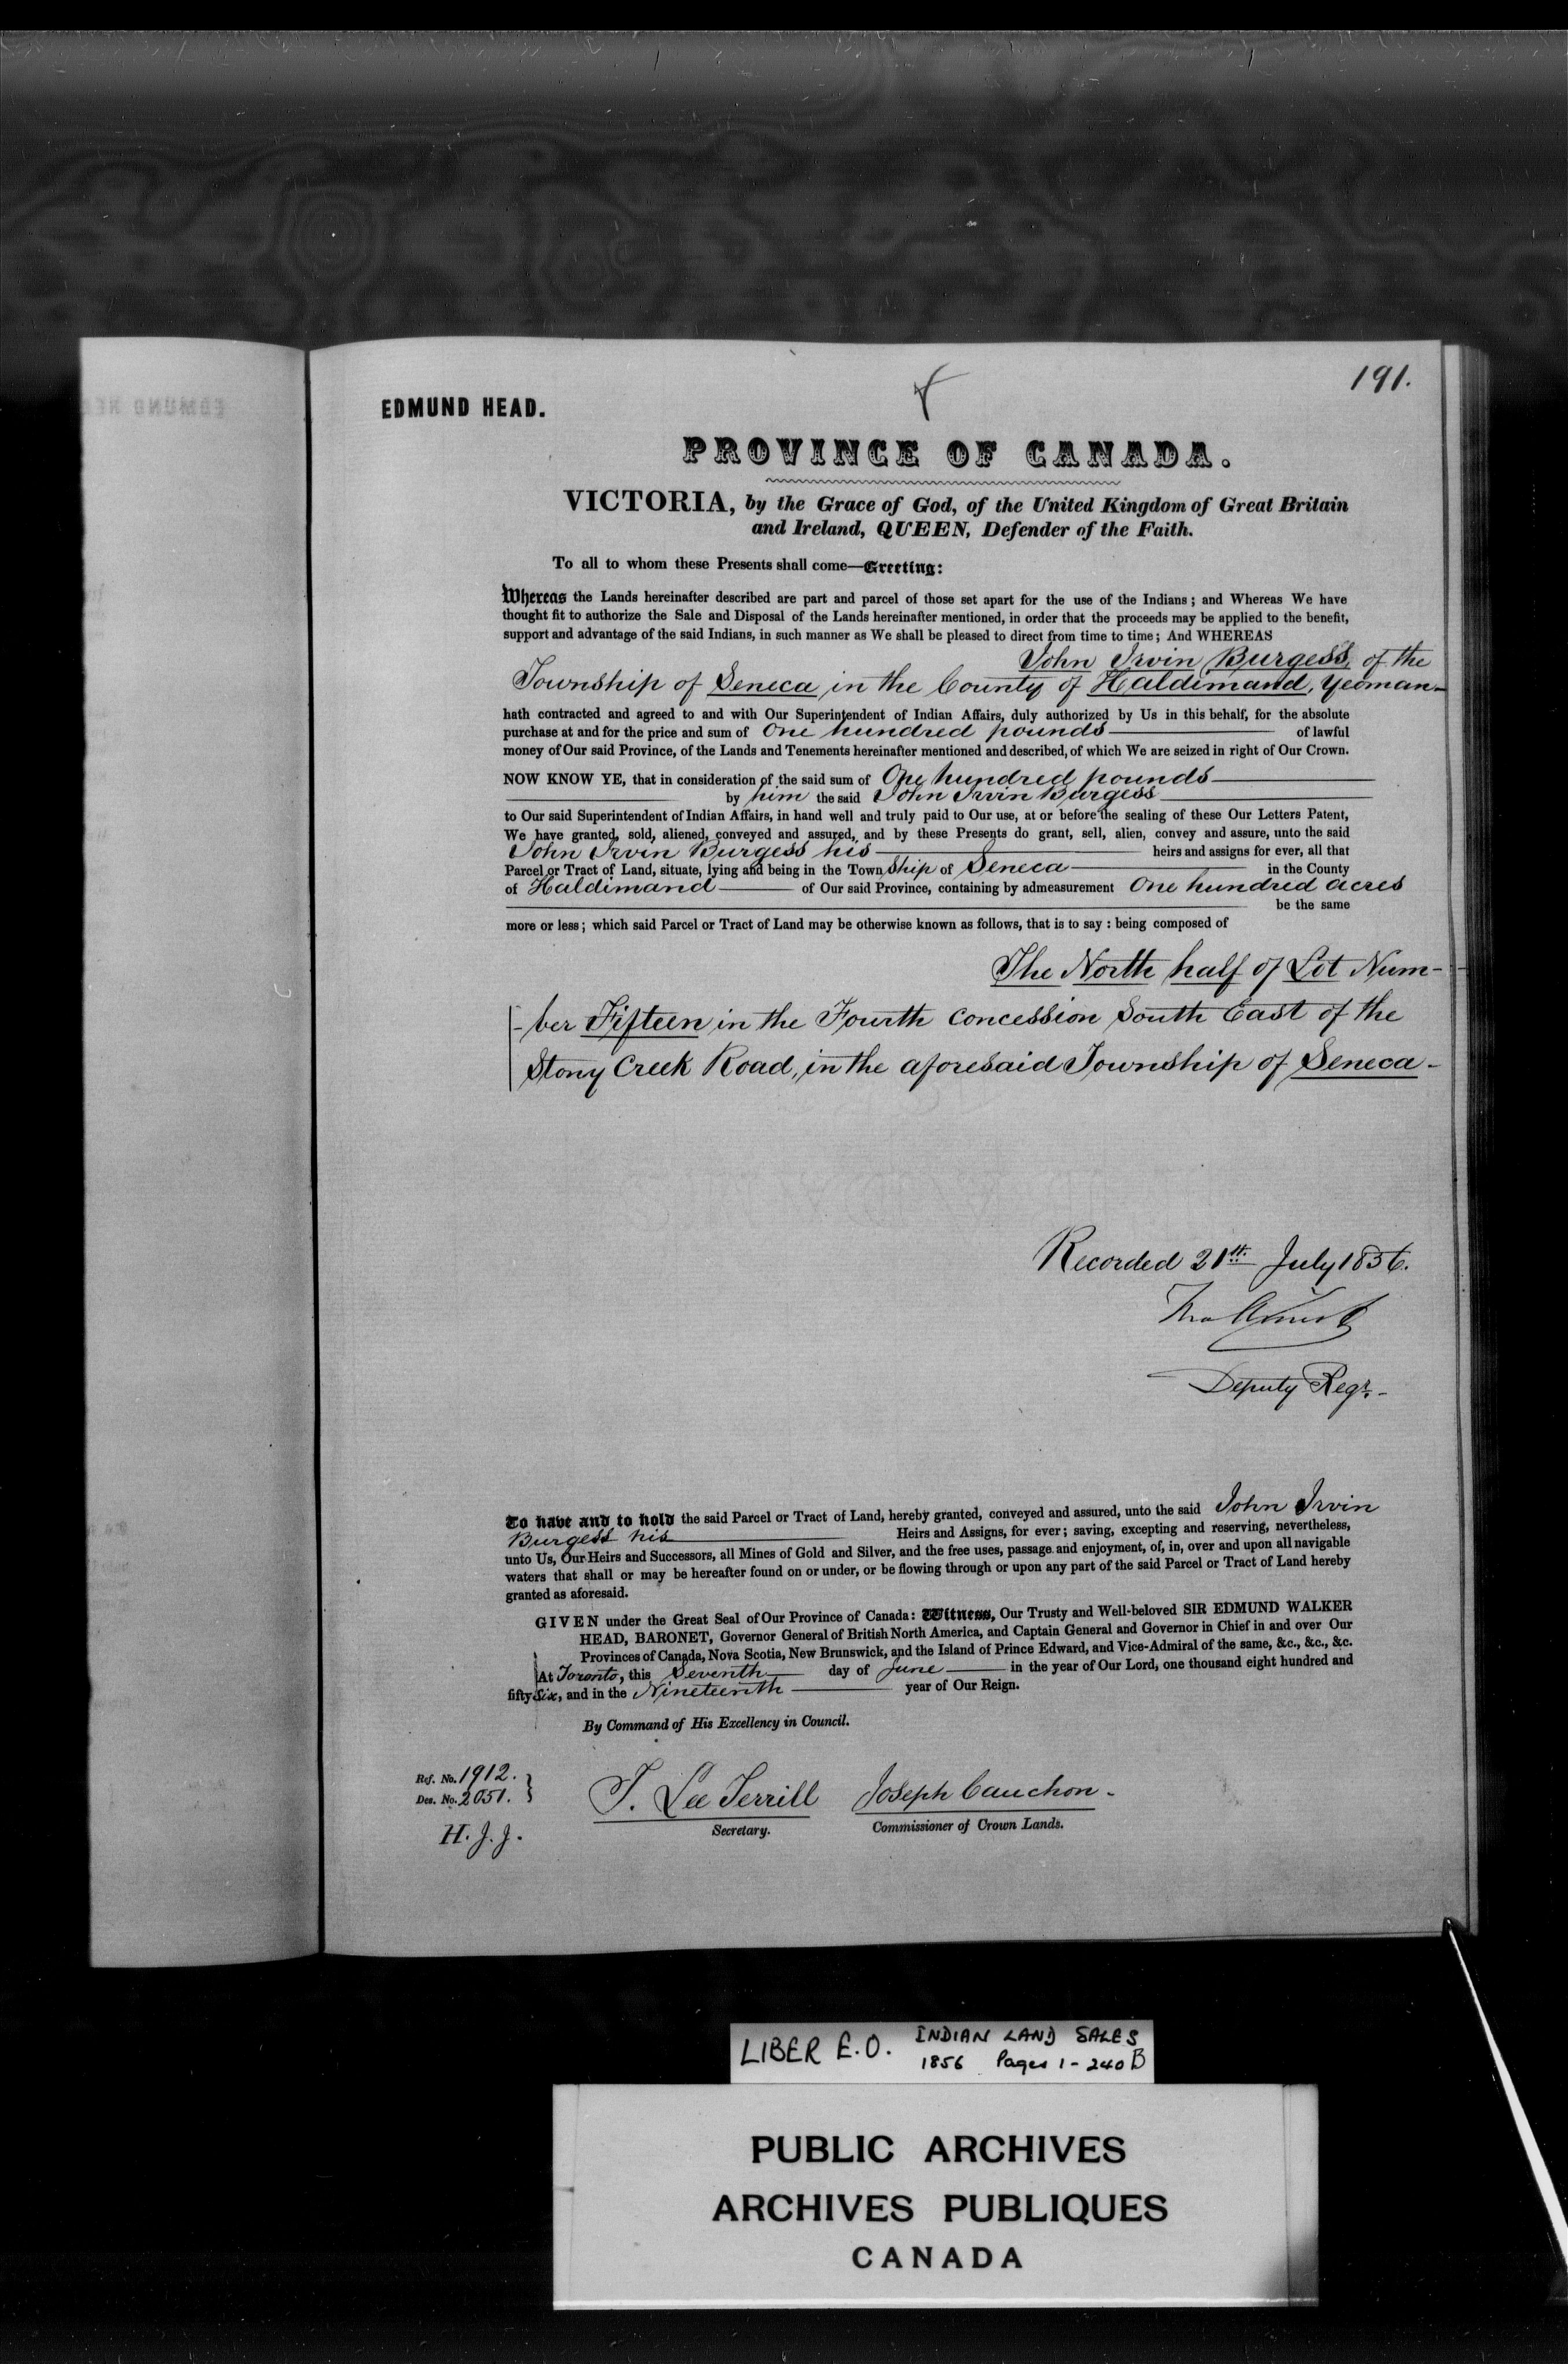 191.
EDMUND HEAD.
PROVINCE OF CANADA.
VICTORIA, by the Grace of God, of the United Kingdom of Great Britain
and Ireland, QUEEN, Defender of the Faith.
To all to whom these Presents shall come—Greeting:
Whereas the Lands hereinafter described are part and parcel of those set apart for the use of the Indians; and Whereas We have
thought fit to authorize the Sale and Disposal of the Lands hereinafter mentioned, in order that the proceeds may be applied to the benefit,
support and advantage of the said Indians, in such manner as We shall be pleased to direct from time to time; And WHEREAS
John Irvin Burgess, of the
Township of Seneca in the County of Haldimand, Yeoman
hath contracted and agreed to and with Our Superintendent of Indian Affairs, duly authorized by Us in this behalf, for the absolute
purchase at and for the price and sum of One hundred pounds of lawful
money of Our said Province, of the Lands and Tenements hereinafter mentioned and described, of which We are seized in right of Our Crown.
NOW KNOW YE, that in consideration of the said sum of One hundred pounds
by him the said John Irvin Burgess
to Our said Superintendent of Indian Affairs, in hand well and truly paid to Our use, at or before the sealing of these Our Letters Patent,
We have granted, sold, aliened, conveyed and assured, and by these Presents do grant, sell, alien, convey and assure, unto the said
John Irvin Burgess his heirs and assigns for ever, all that
Parcel or Tract of Land, situate, lying and being in the Township of Seneca in the County
of Haldimand of Our said Province, containing by admeasurement One hundred acres
be the same
more or less; which said Parcel or Tract of Land may be otherwise known as follows, that is to say: being composed of
The North half of Lot Num-
-ber Fifteen in the Fourth concession South East of the
Stony Creek Road, in the aforesaid Township of Seneca-
Recorded 21st July 1856.
Deputy Regr.
To have and to hold the said Parcel or Tract of Land, hereby granted, conveyed and assured, unto the said John Irvin
Burgess his Heirs and Assigns, for ever; saving, excepting and reserving, nevertheless,
unto Us, Our Heirs and Successors, all Mines of Gold and Silver, and the free uses, passage and enjoyment, of, in, over and upon all navigable
waters that shall or may be hereafter found on or under, or be flowing through or upon any part of the said Parcel or Tract of Land hereby
granted as aforesaid.
GIVEN under the Great Seal of Our Province of Canada: Witness, Our Trusty and Well-beloved SIR EDMUND WALKER
HEAD, BARONET, Governor General of British North America, and Captain General and Governor in Chief in and over Our
Provinces of Canada, Nova Scotia, New Brunswick, and the Island of Prince Edward, and Vice-Admiral of the same, &c., &c., &c.
At Toronto, this Seventh day of June in the year of Our Lord, one thousand eight hundred and
fifty Six, and in the Nineteenth year of Our Reign.
By Command of His Excellency in Council.
Ref. No. 1912.
Des. No. 2051.
H. J. J.
T. Lee Terrill Joseph Cauchon.
Secretary. Commissioner of Crown Lands.
LIBER E.O. INDIAN LAND SALES
1856 Pages 1-240 B
PUBLIC ARCHIVES
ARCHIVES PUBLIQUES
CANADA